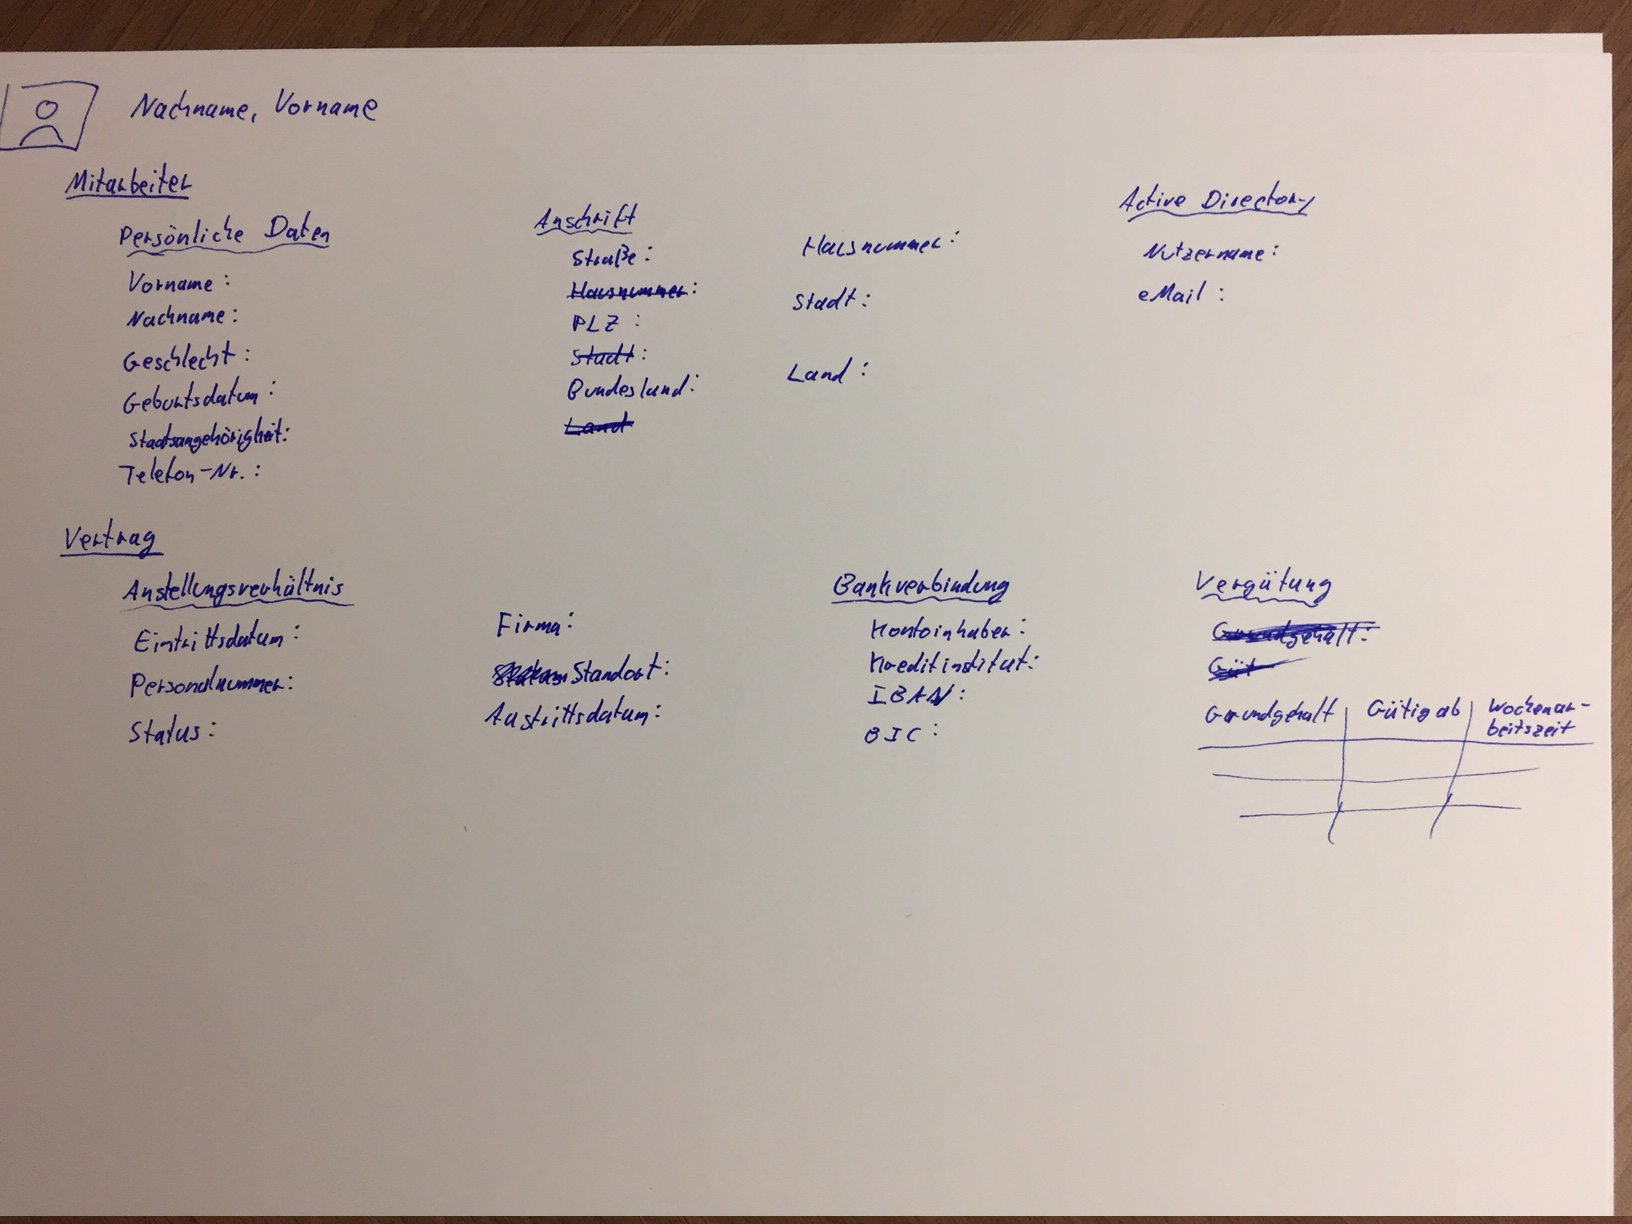 Nachname, Vorname
Mitarbeiter
Persönliche Daten
Vorname:
Nachname:
Geschlecht:
Geburtsdatum:
Staatsangehörigkeit:
Telefon-Nr.:
Anschrift
Straße:
Hausnummer:
PLZ:
Stadt:
Bundesland:
Land
Hausnummer:
Stadt:
Land:
Active Directory
Nutzername:
eMail:
Vertrag
Anstellungsverhältnis
Eintrittsdatum:
Personalnummer:
Status:
Firma:
Standort:
Austrittsdatum:
Bankverbindung
Kontoinhaber:
Kreditinstitut:
IBAN:
BIC:
Vergütung
Grundgehalt:
Güt
Grundgehalt Gütig ab Wochenar-
beitszeit